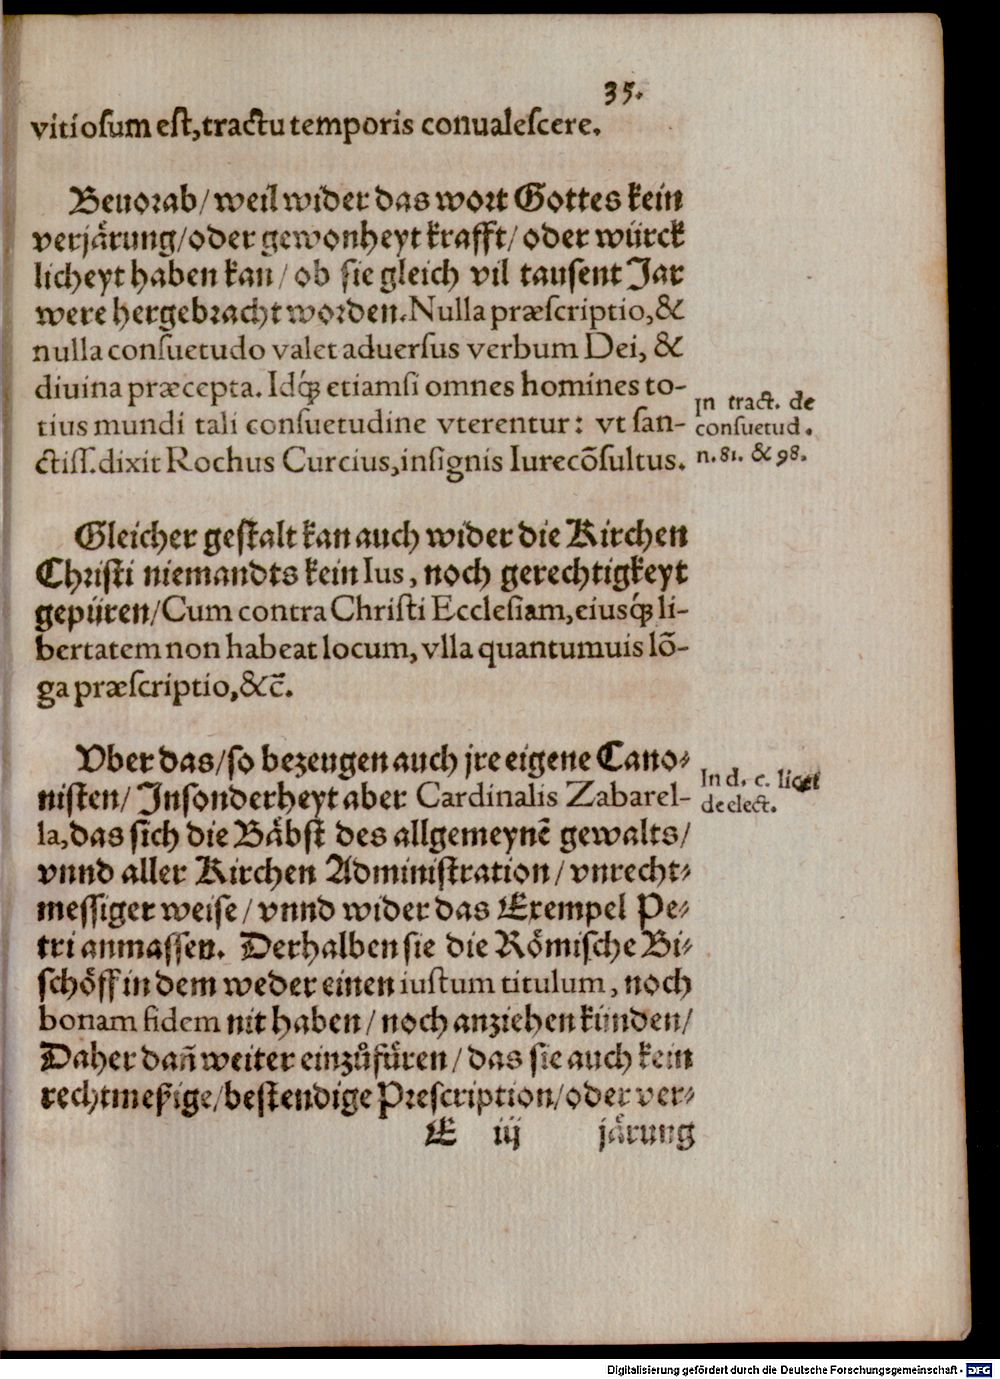 35.
vitiosum est, tractu temporis conualescere.
Beuorab/ weil wider das wort Gottes kein
verjärung/oder gewonheyt krafft/ oder würck
licheyt haben kan/ ob sie gleich vil tausent Jar
were hergebracht worden. Nulla præscriptio, &
nulla consuetudo valet aduersus verbum Dei, &
diuina præcepta. Idq́; etiamsi omnes homines to-
tius mundi tali consuetudine vterentur: vt san-
ctiss. dixit Rochus Curcius, insignis Iurecōsultus.
In tract. de
consuetud.
n. 81. & 98.
Gleicher gestalt kan auch wider die Kirchen
Christi niemandts kein Ius, noch gerechtigkeyt
gepüren/ Cum contra Christi Ecclesiam, eiusq́; li-
bertatem non habeat locum, vlla quantumuis lō-
ga præscriptio, &c̄.
Vber das/ so bezeugen auch jre eigene Cano-
nisten/ Insonderheyt aber Cardinalis Zabarel-
la, das sich die Bäbst des allgemeynē gewalts/
vnnd aller Kirchen Administration/ vnrecht-
messiger weise/ vnnd wider das Exempel Pe-
tri anmassen. Derhalben sie die Römische Bi-
schöff in dem weder einen iustum titulum, noch
bonam fidem nit haben/ noch anziehen künden/
Daher dañ weiter einzůfüren/ das sie auch kein
rechtmeßige/ bestendige Prescription/ oder ver-
In d. c. licet
de elect.
E iij järung
Digitalisierung gefördert durch die Deutsche Forschungsgemeinschaft - DFG